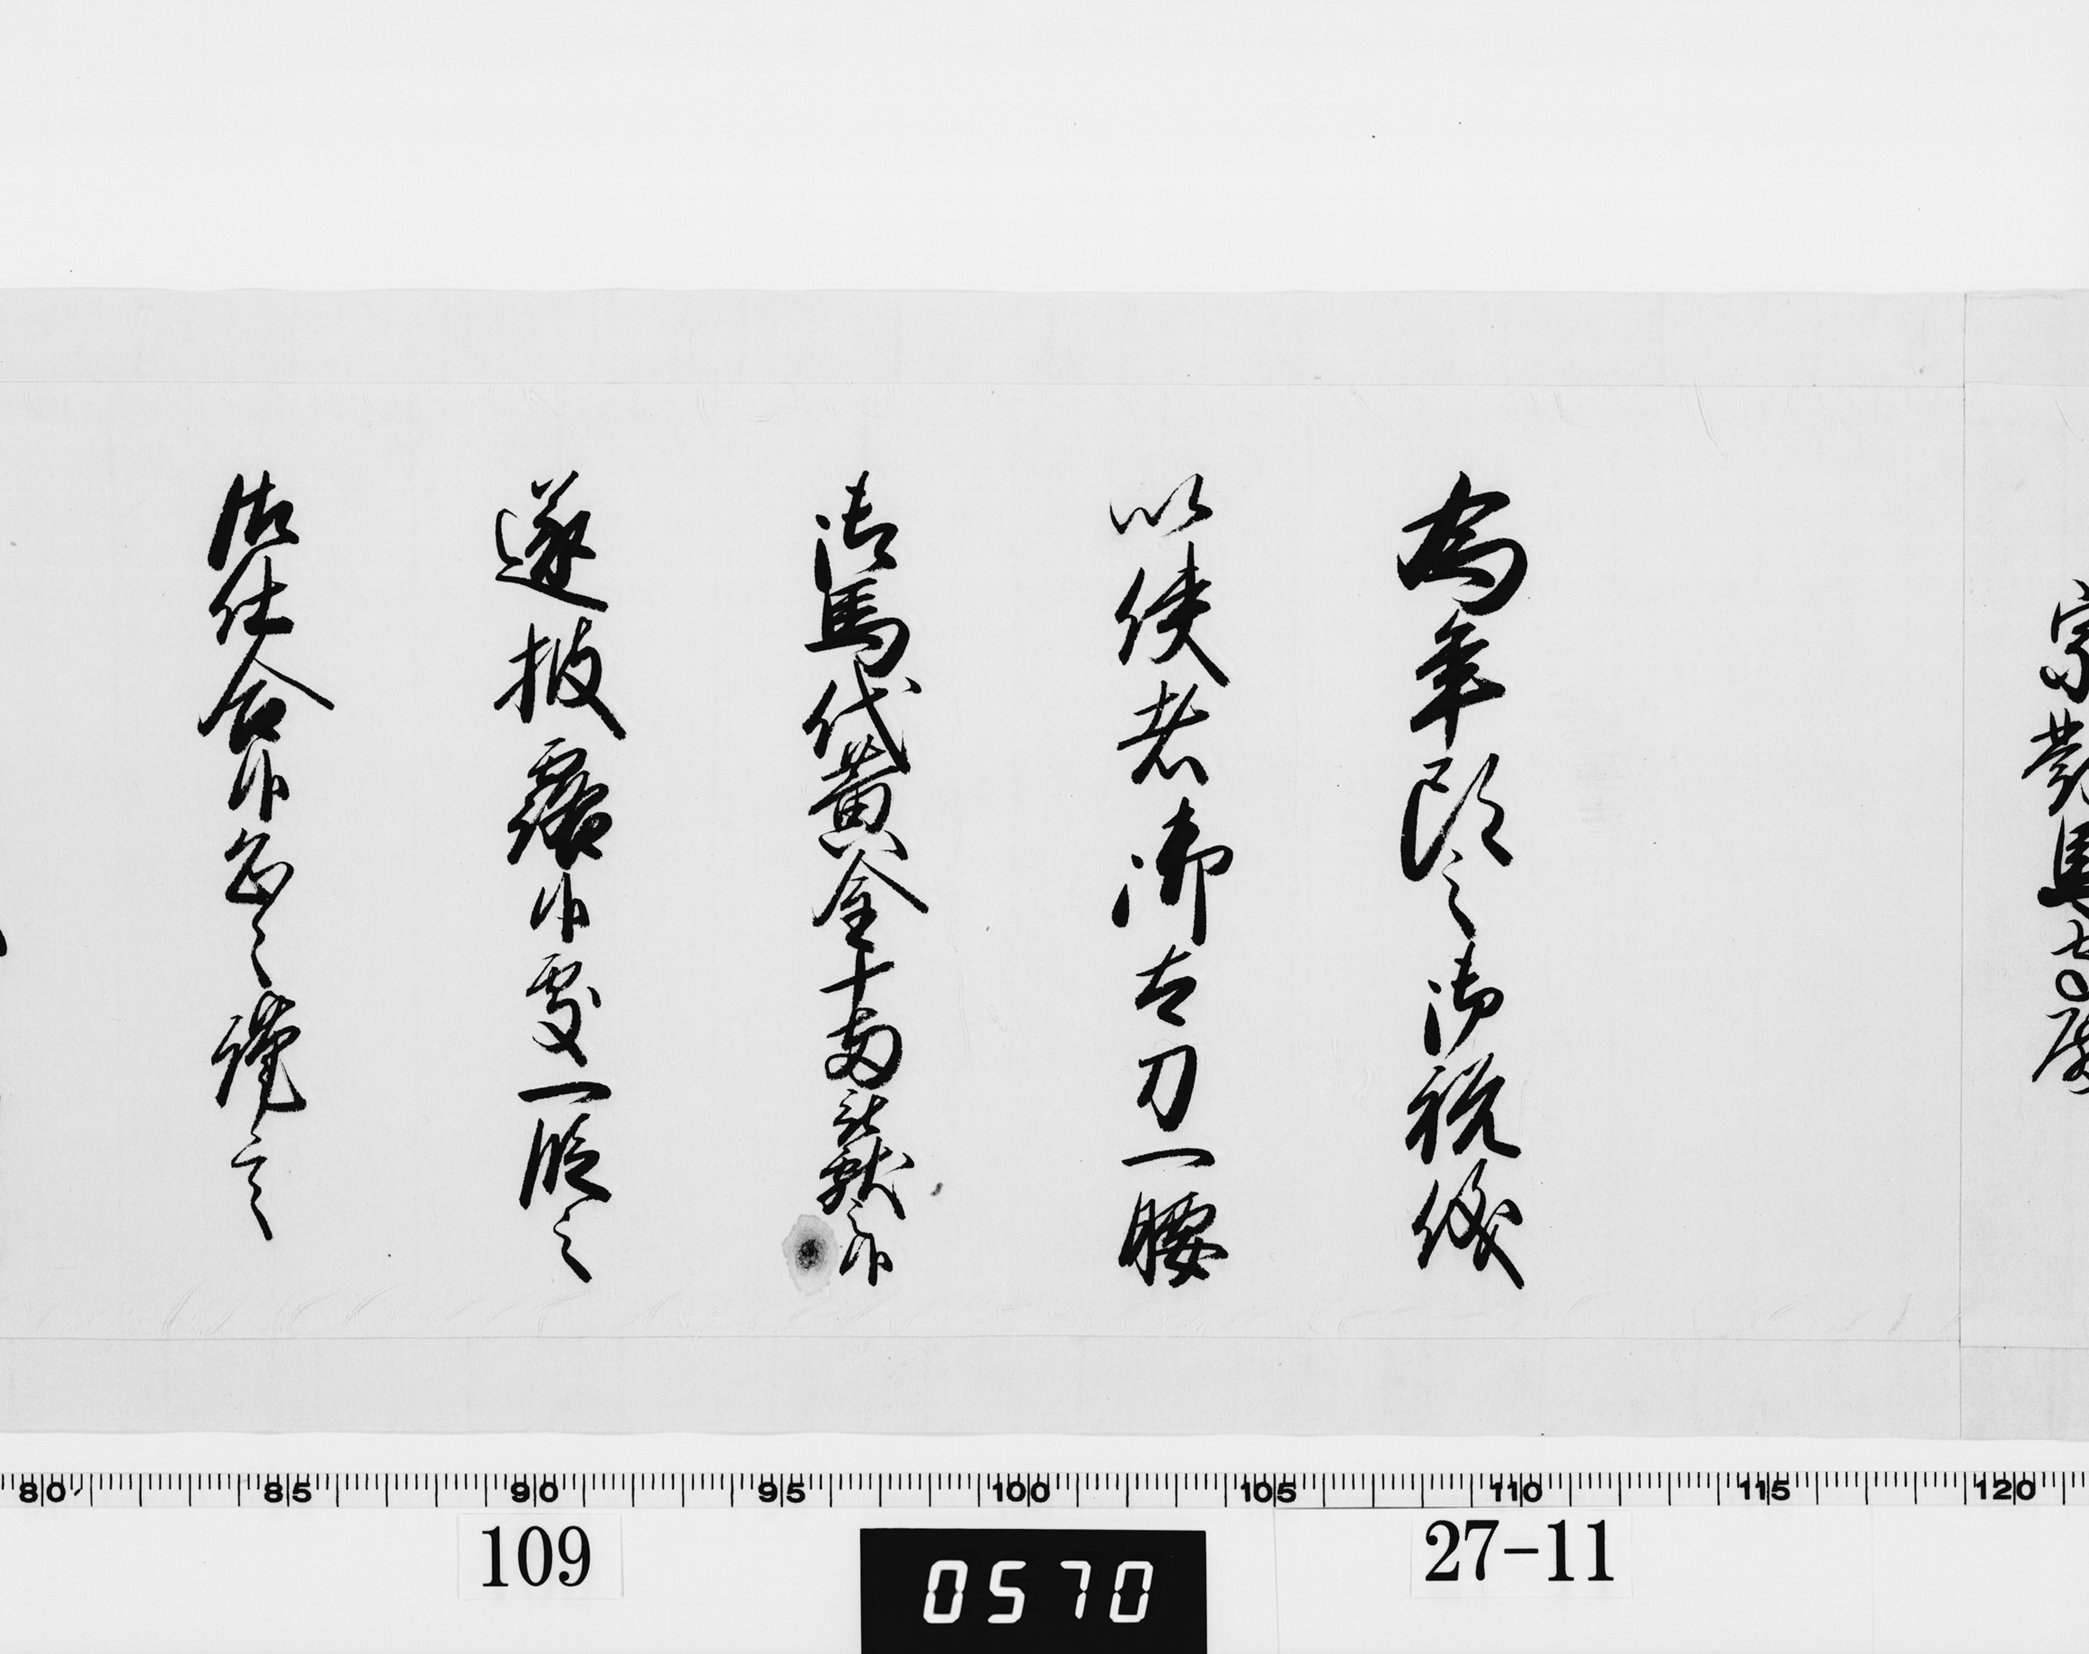 宗對馬守殿
為年頭之御祝儀
以使者御太刀一腰
御馬代黄金十両就献之候
遂披露候處一段之
御仕合候恐々謹言
80 85 90 95 100 105 110 115 120
109
0570
27-11